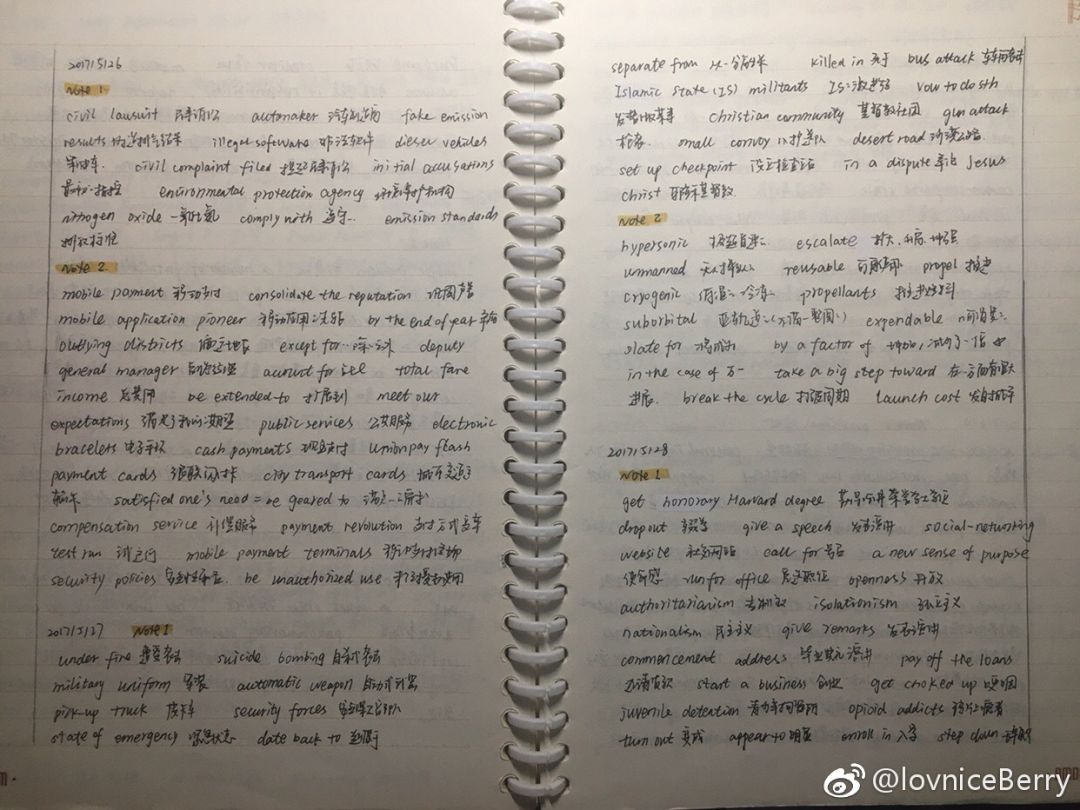 2017/5/26
Note 1.
civil lawsuit 民事诉讼 automaker 汽车制造商 fake emission
results 伪造排气结果 illegal software 非法软件 diesel vehicles
柴油车. civil complaint filed 提起民事诉讼 initial accusations
最初指控 environmental protection agency 环境保护机构
nitrogen oxide 一氧化氮 comply with 遵守.. emission standards
排放标准
Note 2.
mobile payment 移动支付 consolidate the reputation 巩固声誉
mobile application pioneer 移动应用先锋 by the end of year 年底
outlying districts 偏远地区 except for... deputy
general manager 副总经理 account for total fare
income 总费用 be extended to 扩展到 meet our
expectations 满足了我们期望 public services 公共服务 electronic
bracelets 电子手环 cash payments 现金支付 unionpay flash
payment cards 银联闪卡 city transport cards 城市交通卡
satisfied one's need = be geared to 满足..需求
compensation service 补偿服务 payment revolution 支付方式变革
test run 试运行 mobile payment terminals
security policies be unauthorized use
2017/5/27 Note 1
under fire 遭受袭击 suicide bombing 自杀式袭击
military uniform 军装 automatic weapon 自动式武器
pick-up truck 皮卡车 security forces 安全部队
state of emergency 紧急状态 date back to 追溯于
separate from 从..分离出来 killed in 死于 bus attack 车辆袭击
Islamic state (IS) militants vow to do sth
发誓做某事 Christian community 基督教社团 gun attack
枪击. small convoy 小护送队 desert road 沙漠公路
set up checkpoint 设立检查站 in a dispute 争论 Jesus
christ 耶稣基督教
Note 2
hypersonic 极超音速.. escalate 扩大.升高.增强
unmanned 无人操纵 reusable 可重复用 propel 推进
cryogenic propellants 推进燃料
suborbital 亚轨道.. expendable 可消费..
slate for by a factor of
in the case of 万一 take a big step toward 在..方面有很大
进展. break the cycle 打破周期 launch cost 发射成本
2017/5/28
Note 1
get honorary Harvard degree 获得哈佛荣誉学位
dropout 辍学 give a speech 发表演讲 social-networking
website 社交网站 call for 号召 a new sense of purpose
使命感 run for office 竞选职位 openness 开放
authoritarianism 专制主义 isolationism 孤立主义
nationalism 民主主义 give remarks 发表演讲
commencement address 毕业典礼演讲 pay off the loans
还清贷款 start a business 创业 get choked up 哽咽
juvenile detention 青少年拘留所 opioid addicts 鸦片上瘾者
turn out 变成 appear to 明显 enroll in 入学 step down 辞职
@lovniceBerry